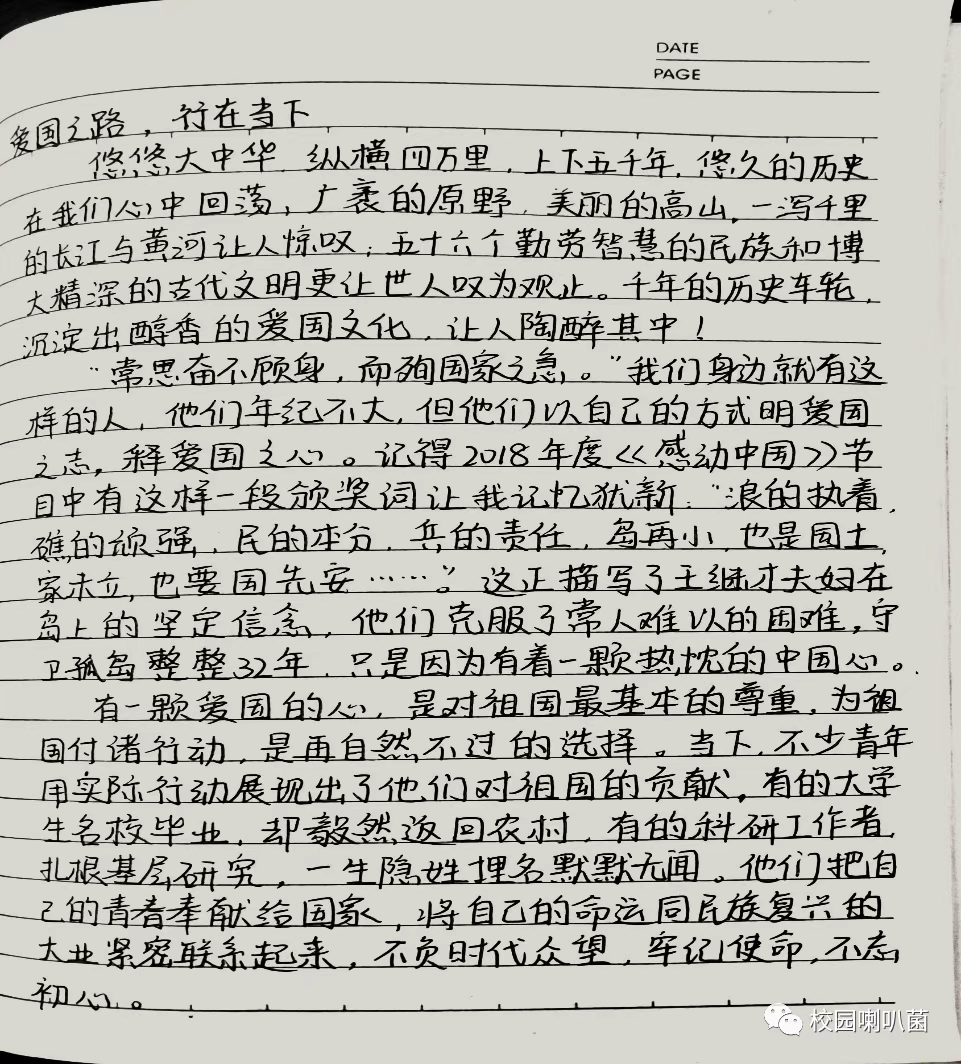 DATE
PAGE
爱国之路，行在当下
悠悠大中华，纵横四万里，上下五千年，悠久的历史
在我们心中回荡，广袤的原野，美丽的高山，一泻千里
的长江与黄河让人惊叹；五十六个勤劳智慧的民族和博
大精深的古代文明更让世人叹为观止。千年的历史车轮，
沉淀出醇香的爱国文化，让人陶醉其中！
“常思奋不顾身，而殉国家之急。”我们身边就有这
样的人，他们年纪不大，但他们以自己的方式明爱国
之志，释爱国之心。记得2018年度《感动中国》节
目中有这样一段颁奖词让我记忆犹新：“浪的执着，
礁的顽强，民的本分，兵的责任，岛再小，也是国土，
家未立，也要国先安……。”这正描写了王继才夫妇在
岛上的坚定信念，他们克服了常人难以的困难，守
卫孤岛整整32年，只是因为有着一颗热忱的中国心。
有一颗爱国的心，是对祖国最基本的尊重，为祖
国付诸行动，是再自然不过的选择。当下，不少青年
用实际行动展现出了他们对祖国的贡献，有的大学
生名校毕业，却毅然返回农村，有的科研工作者，
扎根基层研究，一生隐姓埋名默默无闻。他们把自
己的青春奉献给国家，将自己的命运同民族复兴的
大业紧密联系起来，不负时代众望，牢记使命，不忘
初心。
校园喇叭菌